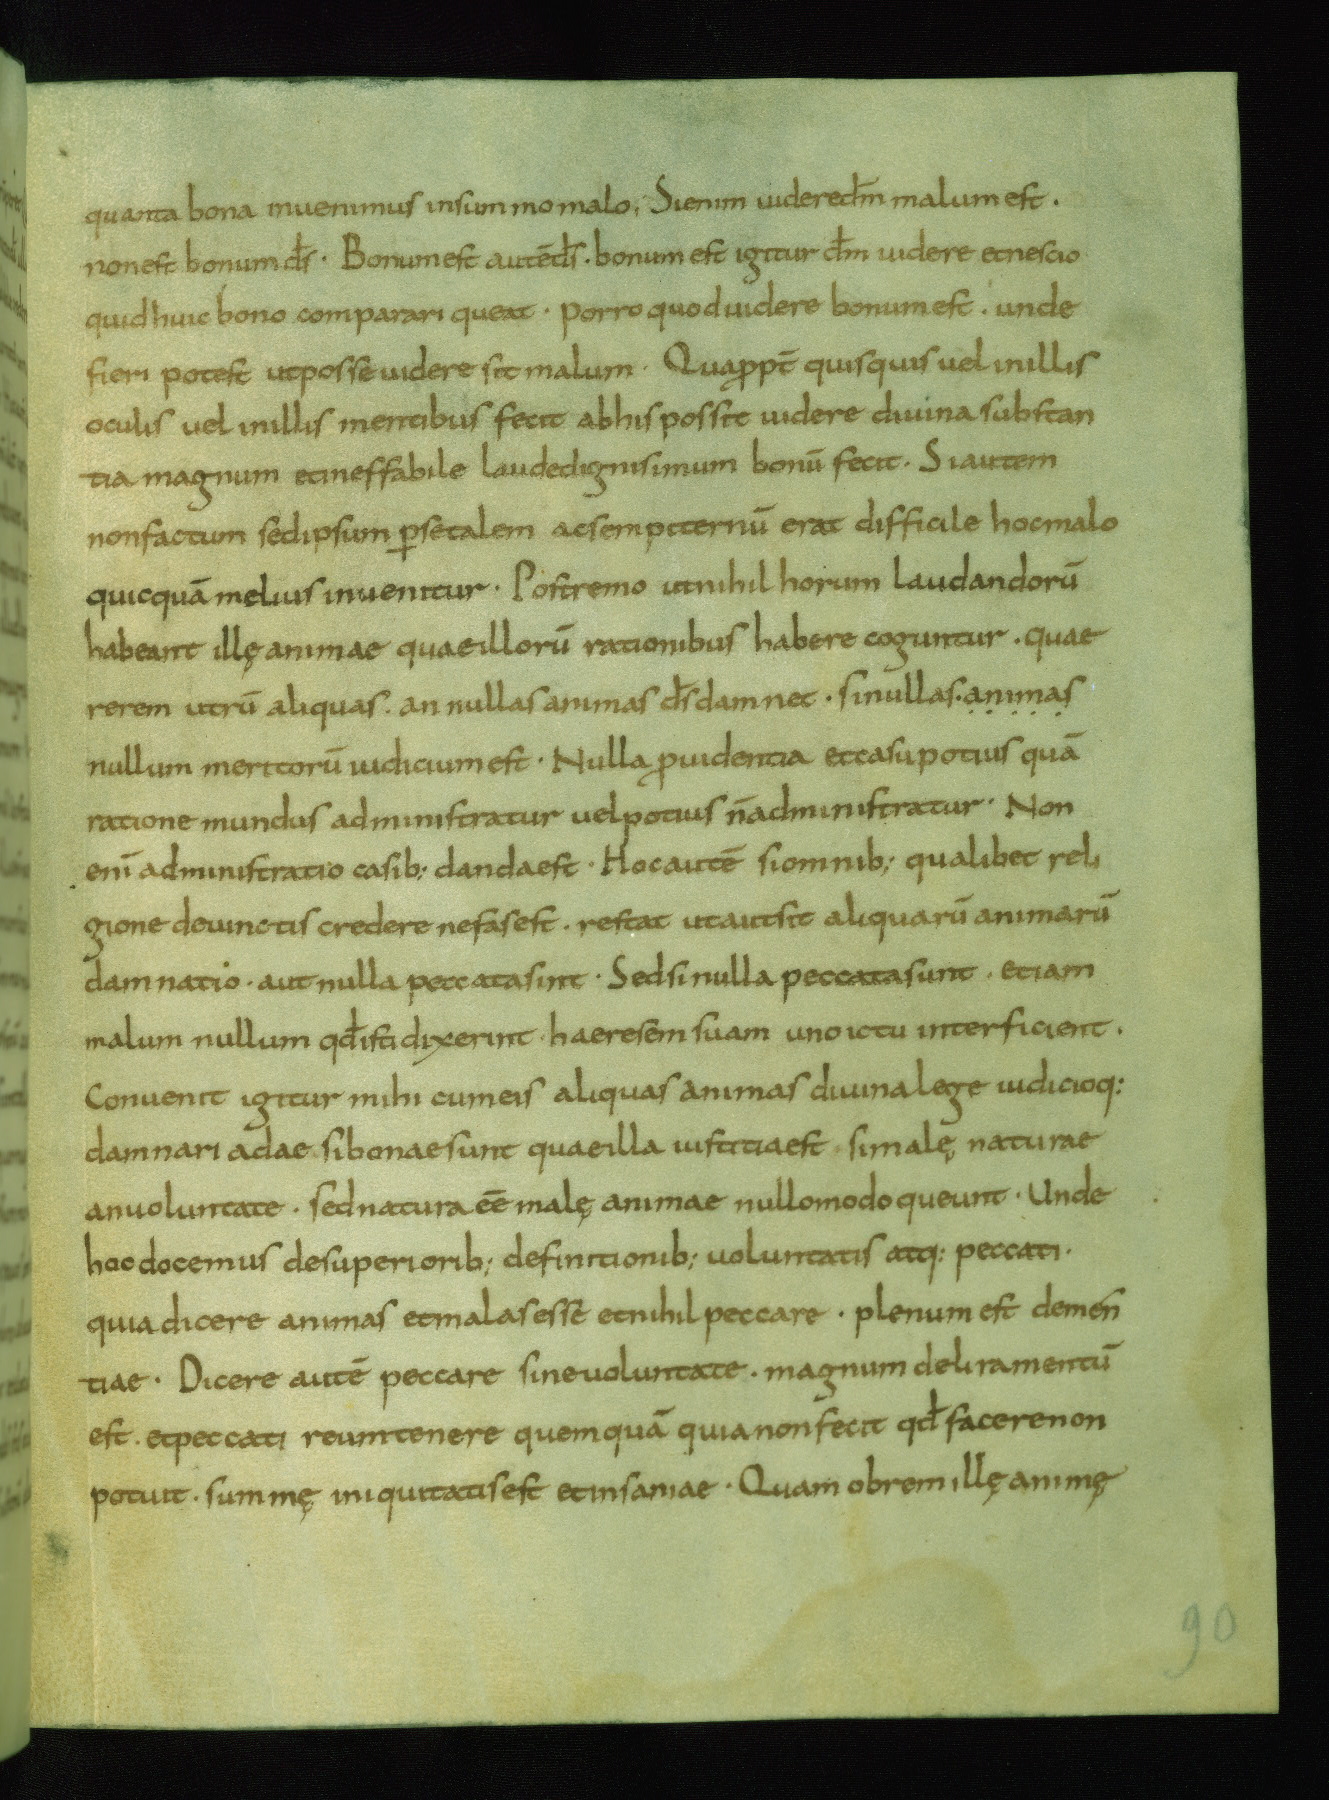 quanta bona inuenimus insummo malo; Sienim uideredm̄ malum est .
non est bonum d̄s · Bonum est autēd̄s . bonum est igitur dm̄ uidere etnescio
quid huic bono comparari queat · porro quod uidere bonum est . unde
fieri potest utposse uidere sit malum · Quaꝓpt̄ quisquis uel inillis
oculis uel inillis mentibus fecit abhis possit uidere diuina substan
tia magnum etineffabile laudedignisimum bonū fecit . Siautem
nonfactum sedipsum ꝑsetalem acsempiternū erat difficile hocmalo
quicquā melius inuenitur · Postremo utnihil horum laudandorū
habeant illę animae quaeillorū rationibus habere coguntur . quae
rerem utrū aliquas . an nullas animas d̄s damnet . sinullas . ạnịmạṣ
nullum meritorū iudicium est · Nulla ꝓuidentia etcasu potius quā
ratione mundus administratur uelpotius n̄administratur · Non
eni̅ administratio casib; dandaest · Hocautē siomnib; qualibet reli
gione deuinctis credere nefasest . restat utautsit aliquarū animarū
damnatio . aut nulla peccatasint · Sedsinulla peccatasunt . etiam
malum nullum qd̄ isti dixerint . haeresem suam uno ictu interficient .
Conuenit igitur mihi cumeis aliquas animas diuinalege iudicioq:
damnari adae sibonaesunt quaeilla iustitiaest . simalę naturae
anuoluntate . sednatura eē malę animae nullomodo queunt · Unde
hoc docemus desuperiorib; definitionib; uoluntatis atq: peccati .
quia dicere animas etmalas esse etnihil peccare . plenum est demen
tiae . Dicere autē peccare sineuoluntate . magnum deliramentū
est . etpeccati reumtenere quemquā quia non fecit qd̄ facere non
potuit . summę iniquitatis est etinsaniae · Quam obrem illę animę
90